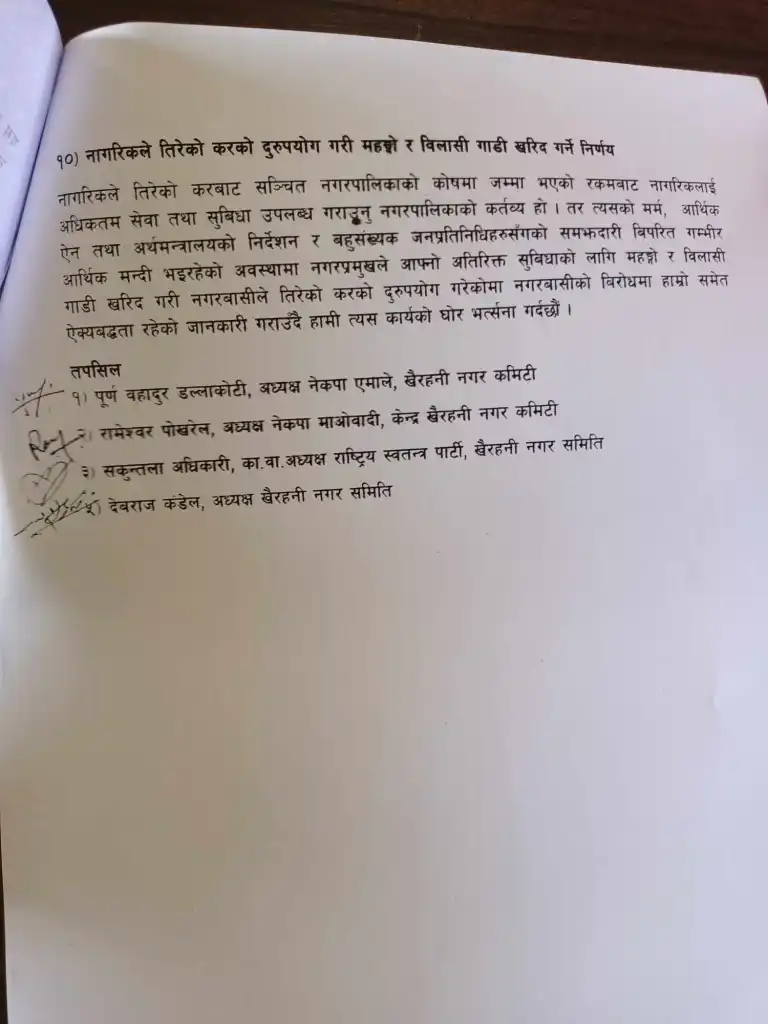 १०) नागरिकले तिरेको करको दुरुपयोग गरी महङ्गो र विलासी गाडी खरिद गर्ने निर्णय
नागरिकले तिरेको करबाट सञ्चित नगरपालिकाको कोषमा जम्मा भएको रकमबाट नागरिकलाई
अधिकतम सेवा तथा सुबिधा उपलब्ध गराउनु नगरपालिकाको कर्तव्य हो । तर त्यसको मर्म, आर्थिक
ऐन तथा अर्थमन्त्रालयको निर्देशन र बहुसंख्यक जनप्रतिनिधिहरुसँगको समझदारी बिपरित गम्भीर
आर्थिक मन्दी भइरहेको अवस्थामा नगरप्रमुखले आफ्नो अतिरिक्त सुबिधाको लागि महङ्गो र विलासी
गाडी खरिद गरी नगरबासीले तिरेको करको दुरुपयोग गरेकोमा नगरबासीको बिरोधमा हाम्रो समेत
ऐक्यबद्धता रहेको जानकारी गराउँदै हामी त्यस कार्यको घोर भर्त्सना गर्दछौं ।
तपसिल
१) पूर्ण बहादुर डल्लाकोटी, अध्यक्ष नेकपा एमाले, खैरहनी नगर कमिटी
२) रामेश्वर पोखरेल, अध्यक्ष नेकपा माओवादी, केन्द्र खैरहनी नगर कमिटी
३) सकुन्तला अधिकारी, का.वा.अध्यक्ष राष्ट्रिय स्वतन्त्र पार्टी, खैरहनी नगर समिति
देबराज कंडेल, अध्यक्ष खैरहनी नगर समिति